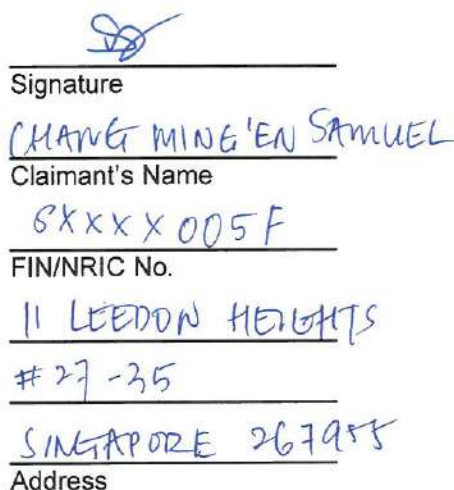 Signature
CHANG MING'EN SAMUEL
Claimant's Name
SXXXX005F
FIN/NRIC No.
11 LEEDON HEIGHTS
#27-35
SINGAPORE 267955
Address